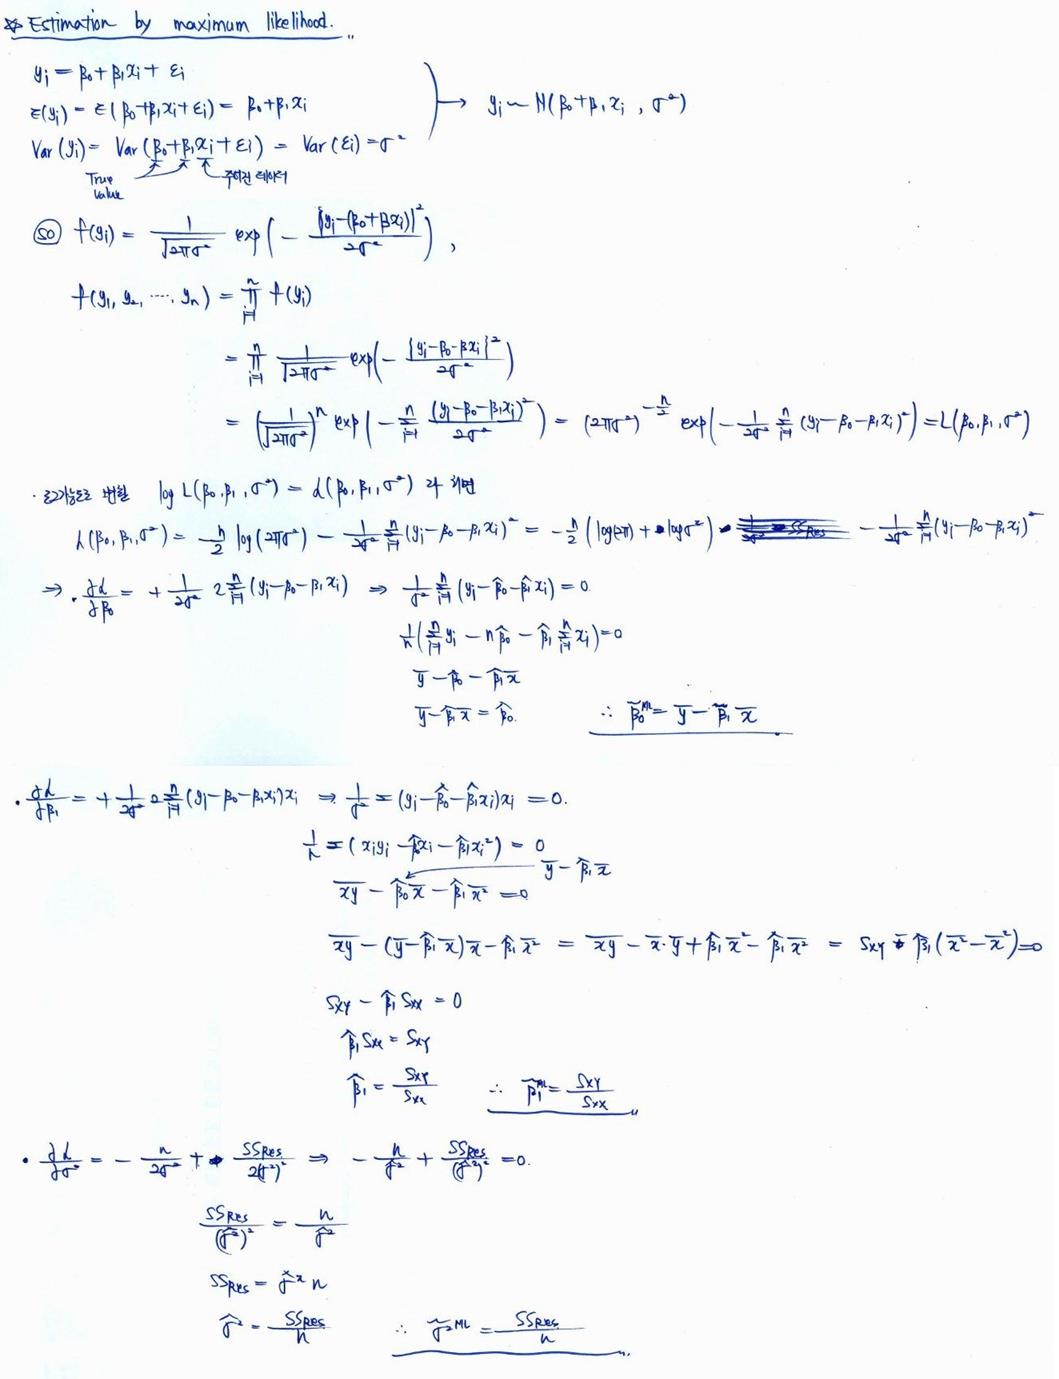 ☆ Estimation by maximum likelihood.
yi = β0 + β1xi + εi
E(yi) = E(β0 + β1xi + εi) = β0 + β1xi
Var(yi) = Var(β0 + β1xi + εi) = Var(εi) = σ²
→ yi ~ N(β0 + β1xi , σ²)
True value
주어진 데이터
SO f(yi) = 1/√(2πσ²) exp(− {yi − (β0 + βxi)}² / 2σ²) ,
f(y1, y2, ...., yn) = ∏_{i=1}^{n} f(yi)
= ∏_{i=1}^{n} 1/√(2πσ²) exp(− {yi − β0 − βxi}² / 2σ²)
= (1/√(2πσ²))^n exp(− Σ_{i=1}^{n} (yi − β0 − β1xi)² / 2σ²) = (2πσ²)^{−n/2} exp(− 1/2σ² Σ_{i=1}^{n} (yi − β0 − β1xi)²) = L(β0, β1, σ²)
· 로그가능도로 변환 log L(β0, β1, σ²) = ℓ(β0, β1, σ²) 라 하면
ℓ(β0, β1, σ²) = −n/2 log(2πσ²) − 1/2σ² Σ_{i=1}^{n} (yi − β0 − β1xi)² = −n/2 (log(2π) + logσ²) − 1/2σ² Σ_{i=1}^{n} (yi − β0 − β1xi)²
⇒ · ∂ℓ/∂β0 = + 1/2σ² 2 Σ_{i=1}^{n} (yi − β0 − β1xi) ⇒ 1/σ² Σ_{i=1}^{n} (yi − β̂0 − β̂1xi) = 0
1/n (Σ_{i=1}^{n} yi − nβ̂0 − β̂1 Σ_{i=1}^{n} xi) = 0
ȳ − β̂0 − β̂1x̄
ȳ − β̂1x̄ = β̂0. ∴ β̃0^ML = ȳ − β̃1 x̄
· ∂ℓ/∂β1 = + 1/2σ² 2 Σ_{i=1}^{n} (yi − β0 − β1xi)xi ⇒ 1/σ² Σ (yi − β̂0 − β̂1xi)xi = 0.
1/n Σ (xiyi − β̂0xi − β̂1xi²) = 0
ȳ − β̂1x̄
x̅y̅ − β̂0x̄ − β̂1x̅²̅ = 0
x̅y̅ − (ȳ − β̂1x̄)x̄ − β̂1x̅²̅ = x̅y̅ − x̄·ȳ + β̂1x̄² − β̂1x̅²̅ = Sxy − β̂1(x̅²̅ − x̄²) = 0
Sxy − β̂1 Sxx = 0
β̂1 Sxx = Sxy
β̂1 = Sxy/Sxx ∴ β̃1^ML = Sxy/Sxx
· ∂ℓ/∂σ² = − n/2σ² + SSRes/2(σ²)² ⇒ − n/σ̂² + SSRes/(σ̂²)² = 0.
SSRes/(σ̂²)² = n/σ̂²
SSRes = σ̂² n
σ̂² = SSRes/n ∴ σ̃²^ML = SSRes/n